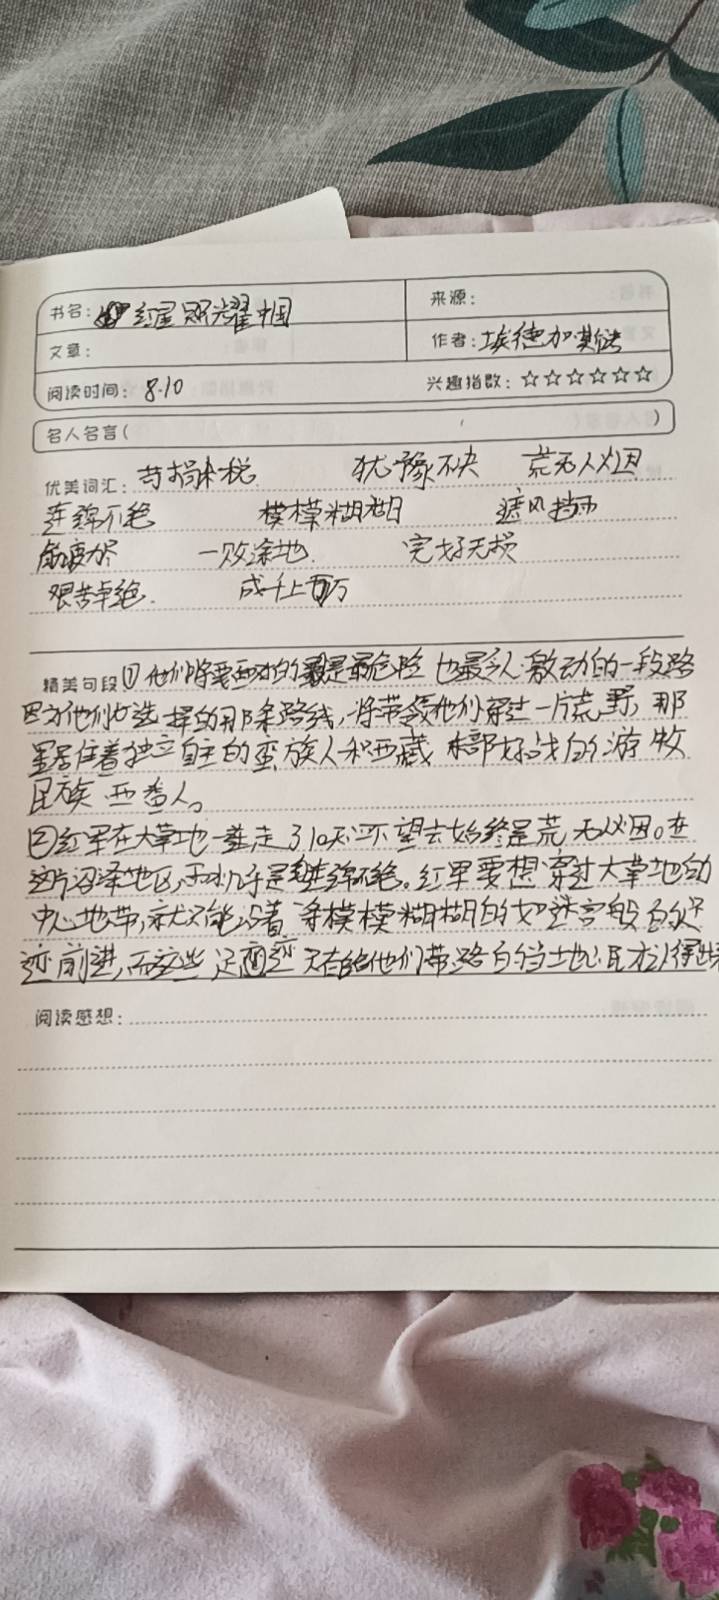 书名: 红星照耀中国
来源:
文章:
作者: 埃德加·斯诺
阅读时间: 8.10
兴趣指数: ☆☆☆☆☆☆
名人名言( )
优美词汇: 苛捐杂税 犹豫不决 荒无人烟
连绵不绝 模模糊糊 遮风挡雨
筋疲力尽 一败涂地 完好无损
艰苦卓绝. 成千上万
精美句段 ①他们将要面对的是最危险 也最令人激动的一段路
因为他们选择的那条路线,将带领他们穿过一片荒野,那
里居住着独立自主的蛮族人和西藏 东部好战的游牧
民族 西番人。
②红军在大草地一连走了10天,望去始终是荒无人烟。在
这片沼泽地区,雨几乎是连绵不绝。红军要想穿过大草地的
中心地带,就只能沿着一条模模糊糊的如迷宫般的足
迹前进,而这些足迹只有给他们带路的当地山民才认得出来
阅读感想: